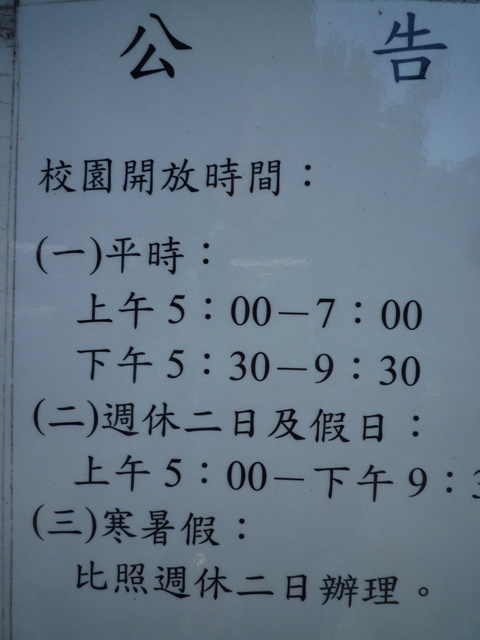 公告
校園開放時間：
(一)平時：
上午5：00－7：00
下午5：30－9：30
(二)週休二日及假日：
上午5：00－下午9：
(三)寒暑假：
比照週休二日辦理。